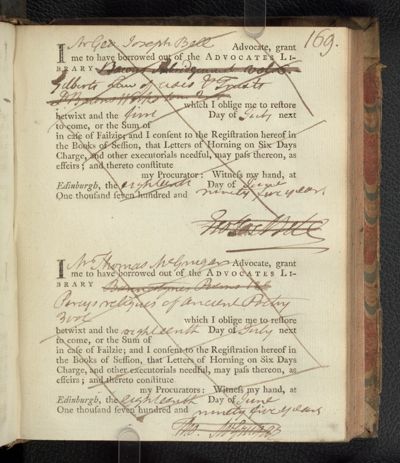 169.
I Mr Geo. Joseph Bell Advocate, grant
me to have borrowed out of the ADVOCATES LI-
BRARY Bacon's Abridgement vol
Gilberts Law of Uses & Trusts
which I oblige me to restore
betwixt and the first Day of July next
to come, or the Sum of
in case of Failzie; and I consent to the Registration hereof in
the Books of Session, that Letters of Horning on Six Days
Charge, and other executorials needful, may pass thereon, as
effeirs; and thereto constitute
my Procurators: Witness my hand, at
Edinburgh, the eighteenth Day of June
One thousand seven hundred and ninety five years
Geo Jos Bell
I Mr Thomas McGrugar Advocate, grant
me to have borrowed out of the ADVOCATES LI-
BRARY
Percys reliques of ancient Poetry
3 vol which I oblige me to restore
betwixt and the eighteenth Day of July next
to come, or the Sum of
in case of Failzie; and I consent to the Registration hereof in
the Books of Session, that Letters of Horning on Six Days
Charge, and other executorials needful, may pass thereon, as
effeirs; and thereto constitute
my Procurators: Witness my hand, at
Edinburgh, the eighteenth Day of June
One thousand seven hundred and ninety five years
Tho. McGrugar